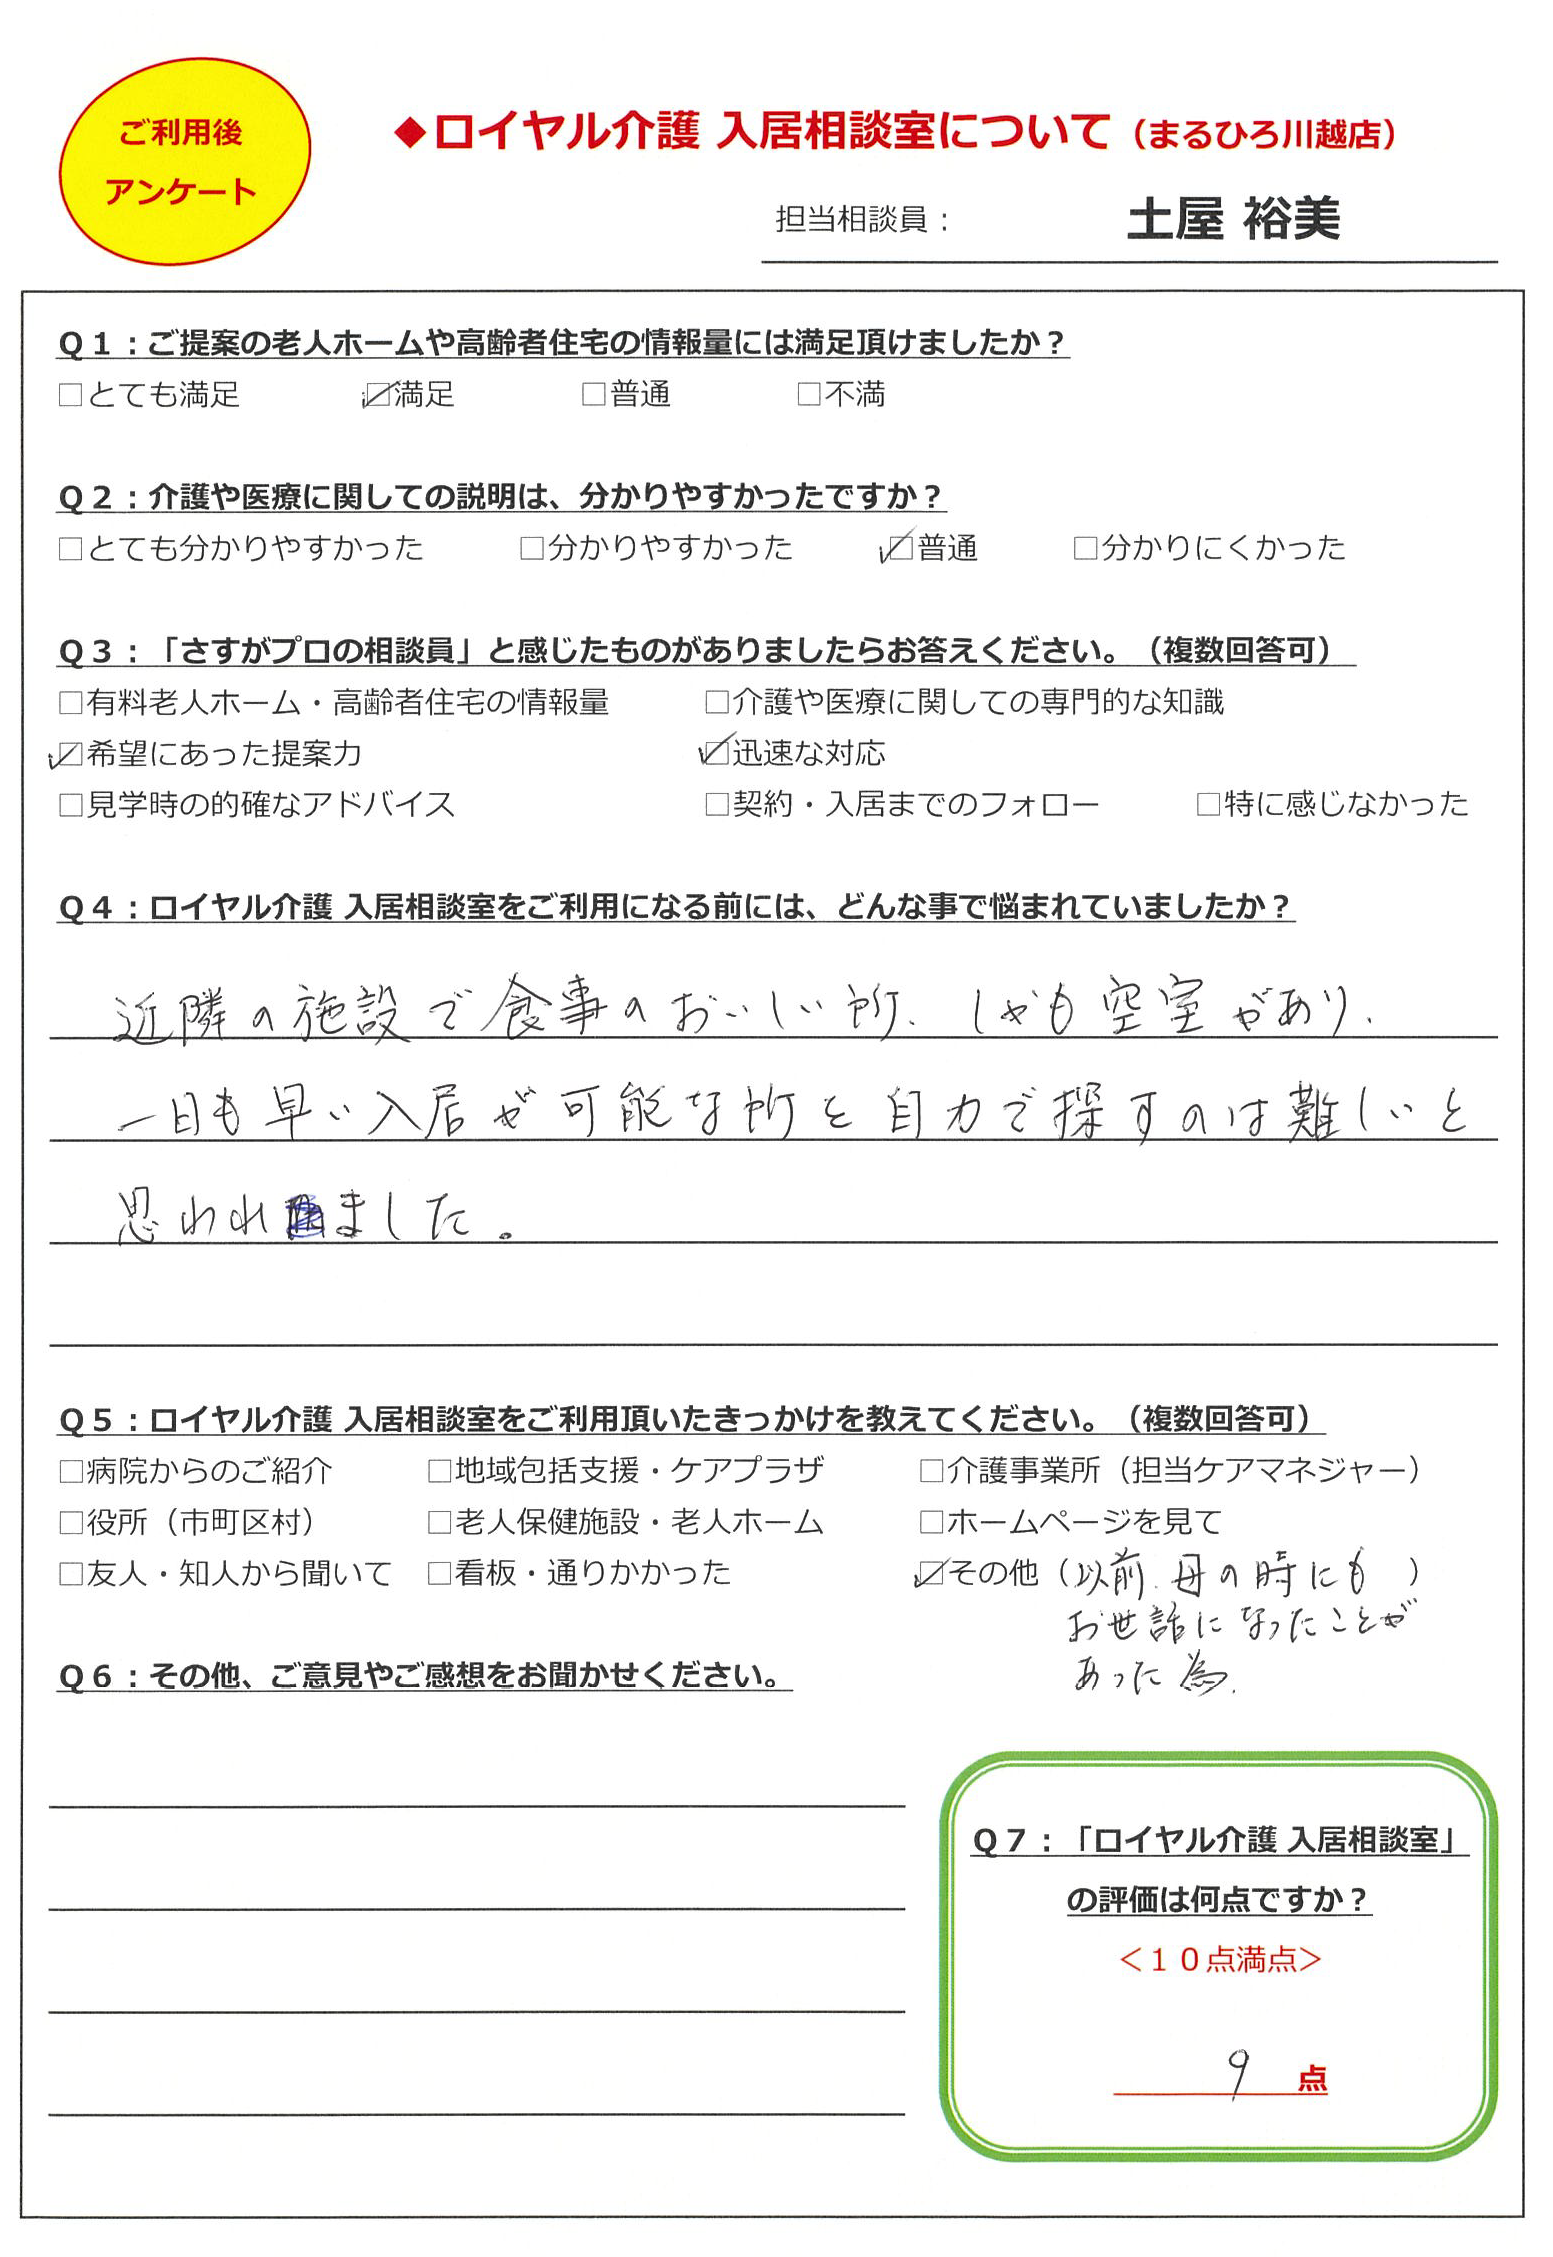 ご利用後
アンケート
◆ロイヤル介護 入居相談室について（まるひろ川越店）
担当相談員： 土屋 裕美
Q１：ご提案の老人ホームや高齢者住宅の情報量には満足頂けましたか？
□とても満足 ☑満足 □普通 □不満
Q２：介護や医療に関しての説明は、分かりやすかったですか？
□とても分かりやすかった □分かりやすかった ☑普通 □分かりにくかった
Q３：「さすがプロの相談員」と感じたものがありましたらお答えください。（複数回答可）
□有料老人ホーム・高齢者住宅の情報量 □介護や医療に関しての専門的な知識
☑希望にあった提案力 ☑迅速な対応
□見学時の的確なアドバイス □契約・入居までのフォロー □特に感じなかった
Q４：ロイヤル介護 入居相談室をご利用になる前には、どんな事で悩まれていましたか？
近隣の施設で食事のおいしい所、しかも空室があり、
一日も早い入居が可能な所を自力で探すのは難しいと
思われました。
Q５：ロイヤル介護 入居相談室をご利用頂いたきっかけを教えてください。（複数回答可）
□病院からのご紹介 □地域包括支援・ケアプラザ □介護事業所（担当ケアマネジャー）
□役所（市町区村） □老人保健施設・老人ホーム □ホームページを見て
□友人・知人から聞いて □看板・通りかかった ☑その他（以前、母の時にも ）
お世話になったことが
あった為、
Q６：その他、ご意見やご感想をお聞かせください。
Q７：「ロイヤル介護 入居相談室」
の評価は何点ですか？
＜１０点満点＞
9 点